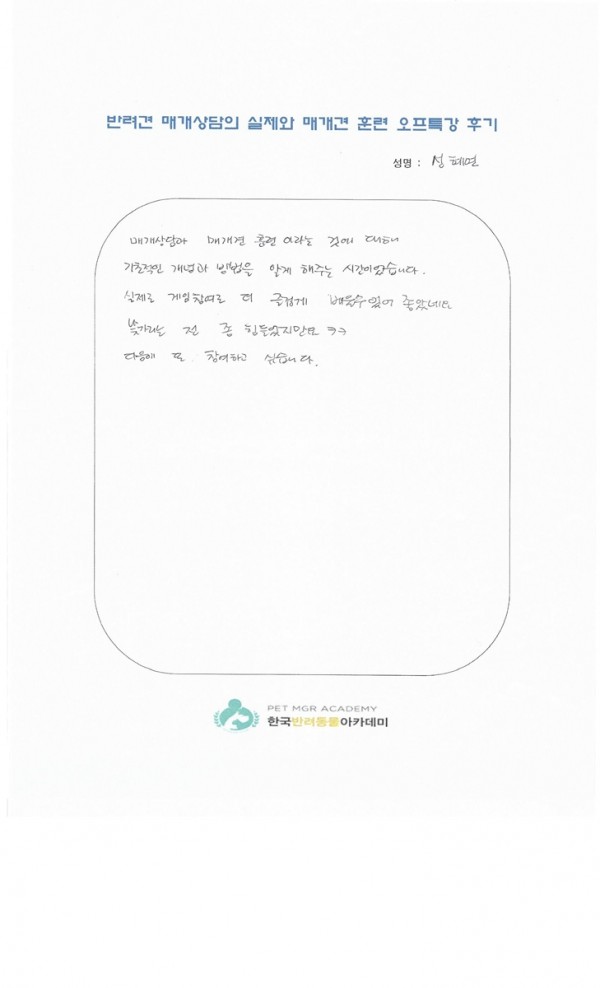 반려견 매개상담의 실제와 매개견 훈련 오프특강 후기
성명 : 성혜연
매개상담과 매개견 훈련 이라는 것에 대해
기초적인 개념과 방법을 알게 해주는 시간이었습니다.
실제로 게임참여로 더 즐겁게 배울수있어 좋았네요
전 좀 힘들었지만요 ㅋㅋ
다음에 또 참여하고 싶습니다.
PET MGR ACADEMY
한국반려동물아카데미